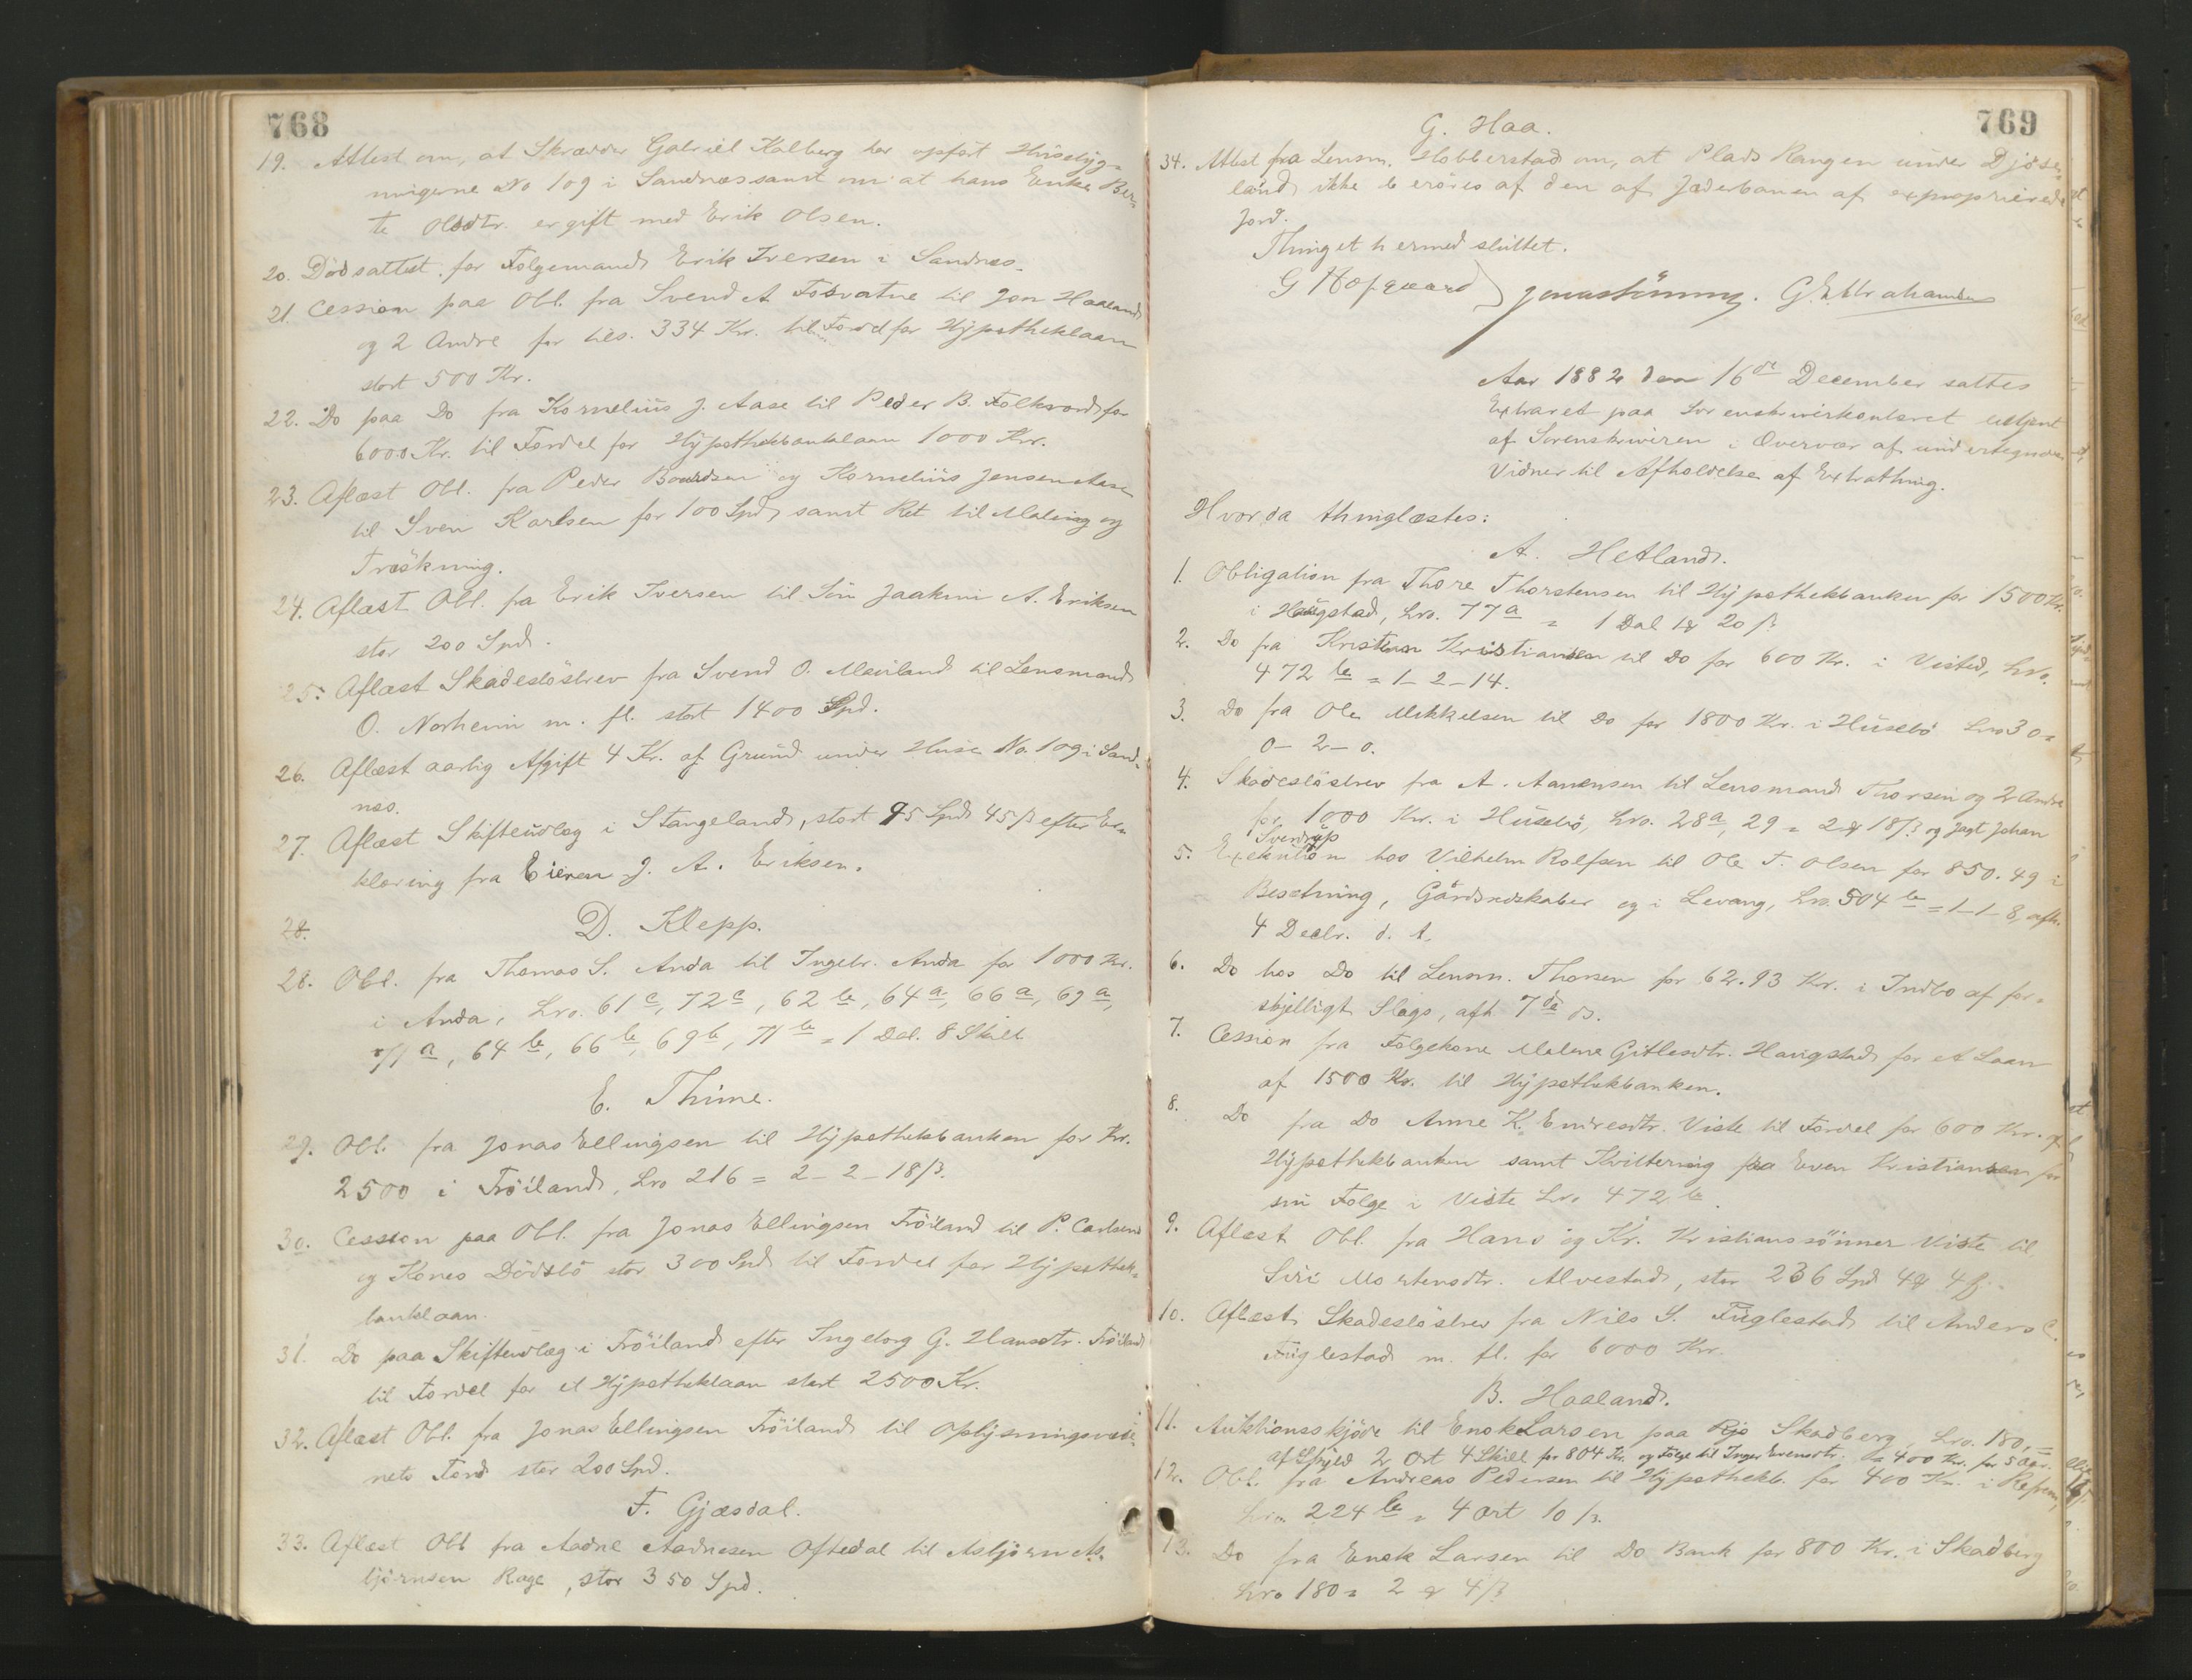 768
19. Attest om, at Skrædder Gabriel Kalberg har opført Huusbÿg=
ningerne No 109 i Sandnæs samt om at hans Enke Ber=
te Olsdtr. er gift med Erik Olsen.
20. Dødsattest for Folgemand Erik Iversen i Sandnæs.
21 Cession paa Obl. fra Svend A Fosvatne til Jon Haaland
og 2 Andre for tils. 334 Kr. til Fordel for Hÿpotheklaan
stort 500 Kr.
22. Do paa Do fra Kornelius J. Aase til Peder B. Folkvord for
6000 Kr. til Fordel for Hÿpothekbanklaan 1000 Kr.
23. Aflæst Obl. fra Peder Baardsen og Kornelius Jensen Aase
til Sven Karlsen for 100 Spd samt Ret til Maling og
Træskning.
24. Aflæst Obl. fra Erik Iversen til Søn Jaakim A. Eriksen
stor 200 Spd.
25. Aflæst Skadesløsbrev fra Svend O. Mauland til Lensmand
O. Norheim m. fl. stort 1400 Spd.
26. Aflæst aarlig Afgift 4 Kr. af Grund under Huse No. 109 i Sand=
næs.
27. Aflæst Skifteudlæg i Stangeland, stort 95 Spd 45 β efter Er=
klæring fra Eieren J. A. Eriksen.
28.
D. Klepp.
28. Obl. fra Thomas S. Anda til Ingebr. Anda for 1000 Kr.
i Anda, Lno. 61c, 72c, 62b, 64a, 66a, 69a,
71a, 64b, 66b, 69b, 71b = 1 Dal. 8 Skill.
E. Thime.
29. Obl. fra Jonas Ellingsen til Hÿpothekbanken for Kr.
2500 i Frøiland, Lno 216 = 2-2-18 β.
30. Cession paa Obl. fra Jonas Ellingsen Frøiland til P. Carlsens
og Kones Dødsbo stor 300 Spd til Fordel for Hÿpothek=
banklaan.
31. Do paa Skifteudlæg i Frøiland efter Ingeborg G. Hansdtr. Frøiland
til Fordel for et Hÿpotheklaan stort 2500 Kr.
32. Aflæst Obl. fra Jonas Ellingsen Frøiland til Oplÿsningsvæse=
nets Fond stor 200 Spd.
F. Gjæsdal.
33. Aflæst Obl fra Aadne Aadnesen Oftedal til Asbjørn As=
bjørnsen Rage, stor 350 Spd.
769
G. Haa.
34. Attest fra Lensm. Hobberstad om, at Plads Rangen under Djøse=
land ikke berøres af den af Jæderbanen af exproprierede
Jord.
Thinget hermed sluttet.
G Hofgaard
Aar 1882 den 16de December sattes
Extraret paa Sorenskriverkontoret betjent
af Sorenskriveren i Overvær af undertegnede
Vidner til Afholdelse af Extrathing.
Hvorda thinglæstes:
A. Hetland.
1. Obligation fra Thore Thorstensen til Hÿpothekbanken for 1500 Kr.
i Haugstad, Lno. 77a = 1 Dal 1 ꝥ 20 β
2. Do fra Kristian Kristiansen til Do for 600 Kr. i Visted, Lno.
472 b = 1-2-14.
3. Do fra Ole Mikkelsen til Do for 1800 Kr. i Husebø Lno 30=
0-2-0.
4. Skadesløsbrev fra A. Aanensen til Lensmand Thorsen og 2 Andre
for 1000 Kr. i Husebø, Lno. 28a, 29 = 2 ꝥ 18 β og Jagt Johan
Sverdrup
5. Exekution hos Vilhelm Rolfsen til Ole T. Olsen for 850.49 i
Besætning, Gårdsredskaber og i Levang, Lno. 504 b = 1-1-8, afh.
4 Decbr. d. A.
6. Do hos Do til Lensm. Thorsen for 62.93 Kr. i Indbo af for=
skjelligt Slags, afh 7de ds.
7. Cession fra Folgekone Malene Gitlesdtr. Haugstad for et Laan
af 1500 Kr. til Hÿpothekbanken.
8. Do fra Do Anne K. Endresdtr. Viste til Fordel for 600 Kr. af
Hÿpothekbanken samt Kvittering fra Even Kristiansen for
sin Folge i Viste Lno 472 b.
9. Aflæst Obl. fra Hans og Kr. Kristianssønner Viste til
Siri Mortensdtr. Alvestad, stor 236 Spd 4 ꝥ 4 β.
10. Aflæst Skadesløsbrev fra Nils S. Fuglestad til Anders C.
Fuglestad m. fl. for 6000 Kr.
B. Haaland.
11. Auktionsskjøde til Enok Larsen paa Rjo Skadberg, Lno. 180, =
af Skyld 2 Ort 4 Skill for 804 Kr. og Folge til Inger Evensdtr. Do 400 Kr. for 5 Aar.
12. Obl. fra Andreas Pedersen til Hÿpothekb. for 400 Kr. i Refsnes,
Lno 224 b = 4 Ort 10 β.
13. Do fra Enok Larsen til Do Bank for 800 Kr. i Skadberg
Lno 180 = 2 ꝥ 4 β